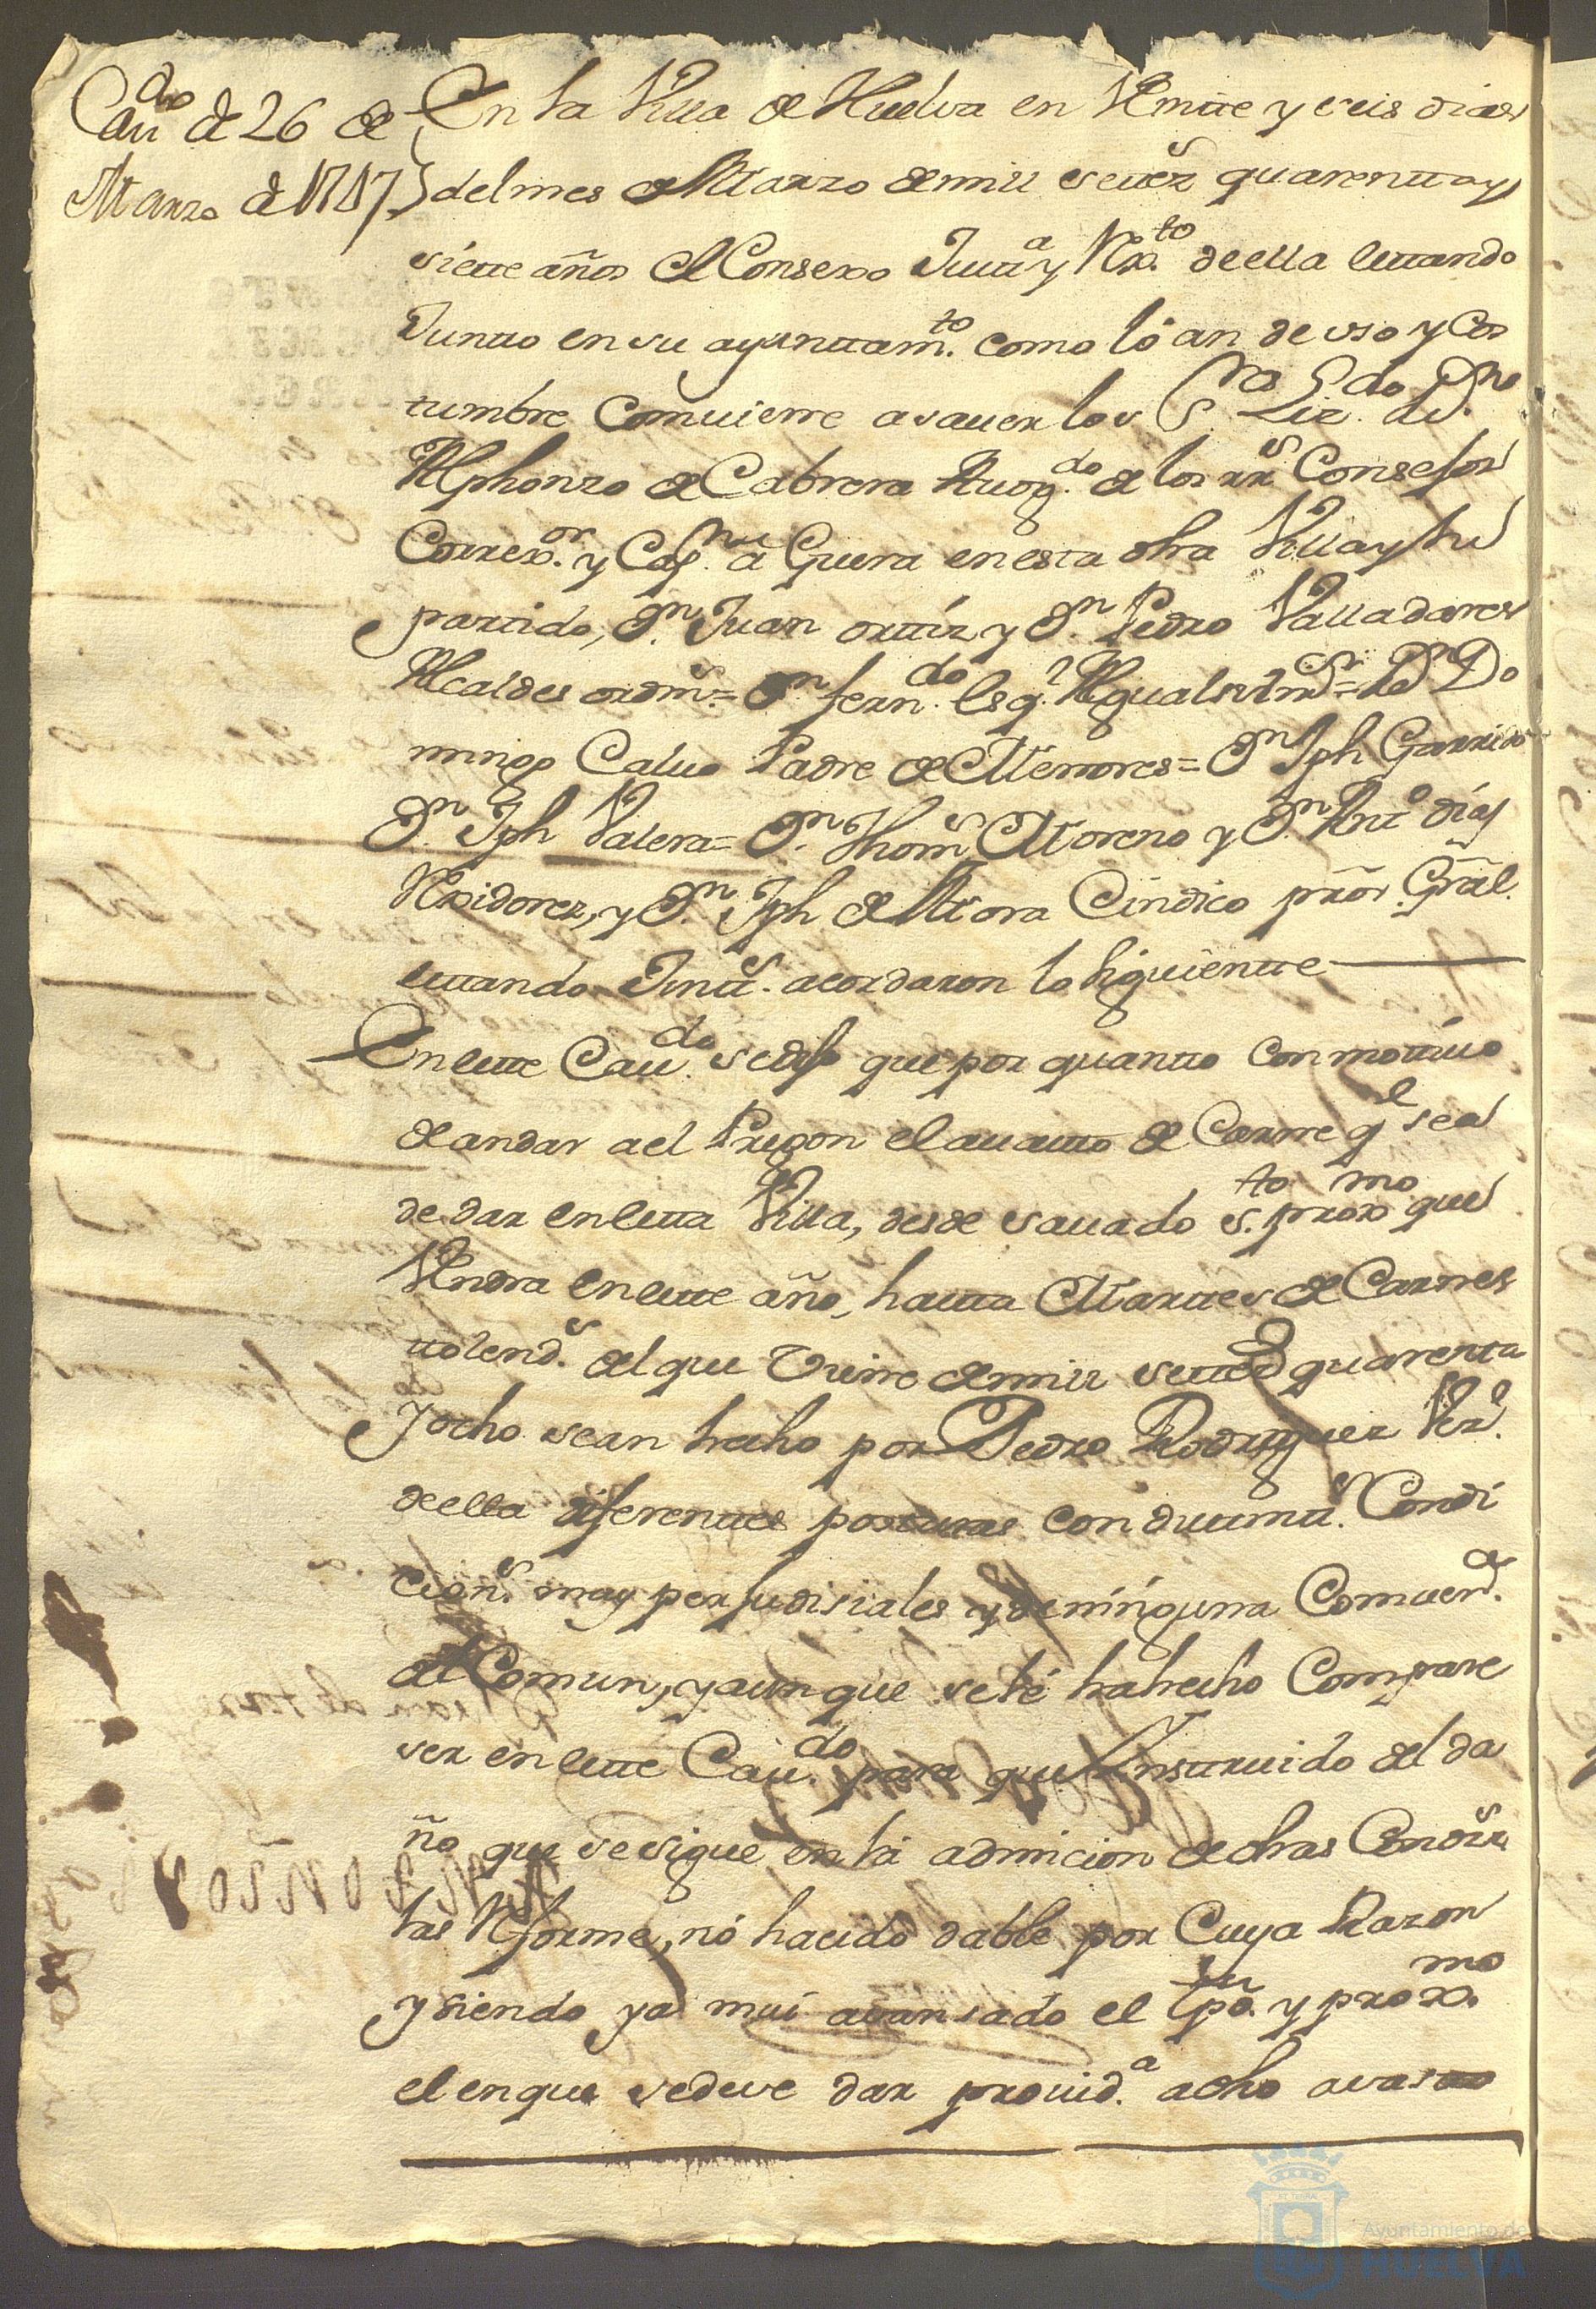 Cau.do de 26 de
Marzo de 1747
En la Villa de Huelva en Veintte y seis dias
del mes de Marzo de mill setts. quarentta y
siette años el Consexo Justt.a y Rx.to de ella esttando
Juntto en su ayunttam.to como lo an de uso y cos
tumbre combiene a sauer los S.res Liz.do Dn.
Alphonzo de Cabrera Auog.do de los rr.s Consejos
Correx.or y Cap.n a Guerra en esta dha Villa y su
parttido, Dn. Juan orttiz y Dn. Pedro Valladares
Alcaldes ordin.s = Dn. fern.do Esq.l Alguasil m.or = Dn. Do
mingo Caluo Padre de Menores = Dn. Jph Garrido
Dn. Jph Valera = Dn. Thom.s Moreno y Dn. Antt.o días
Rexidores, y Dn. Jph de Mora Cindico prõr. Grãl.
esttando Juntt.s acordaron lo siguientte
En estte Cau.do se dijo que por quantto con mottiuo
de andar a el Pregon el auastto de Carne q.e se a
de dar en estta Villa, desde sauado s.to prox.mo que
Vendra en estte año, hastta Marttes de Carnes
ttolend.s del que viene de mill setts. quarenta
Y ocho se an hecho por Pedro Rodriguez Vez.o
de ella diferenttes postturas con disttintt.s Condi
cion.s muy perjudisiales y de ninguna Comben.a
al Comun, y aunque se le ha hecho Compare
ser en estte Cau.do para que Insttruido del da
ño que se sigue en la admicion de dhas Condiz.s
las Reforme, no ha sido dable por Cuya Razon
y siendo ya mui avansado el tpo. y prox.mo
el en que se deue dar prouid.a a dho avastto
Ayuntamiento de
HUELVA